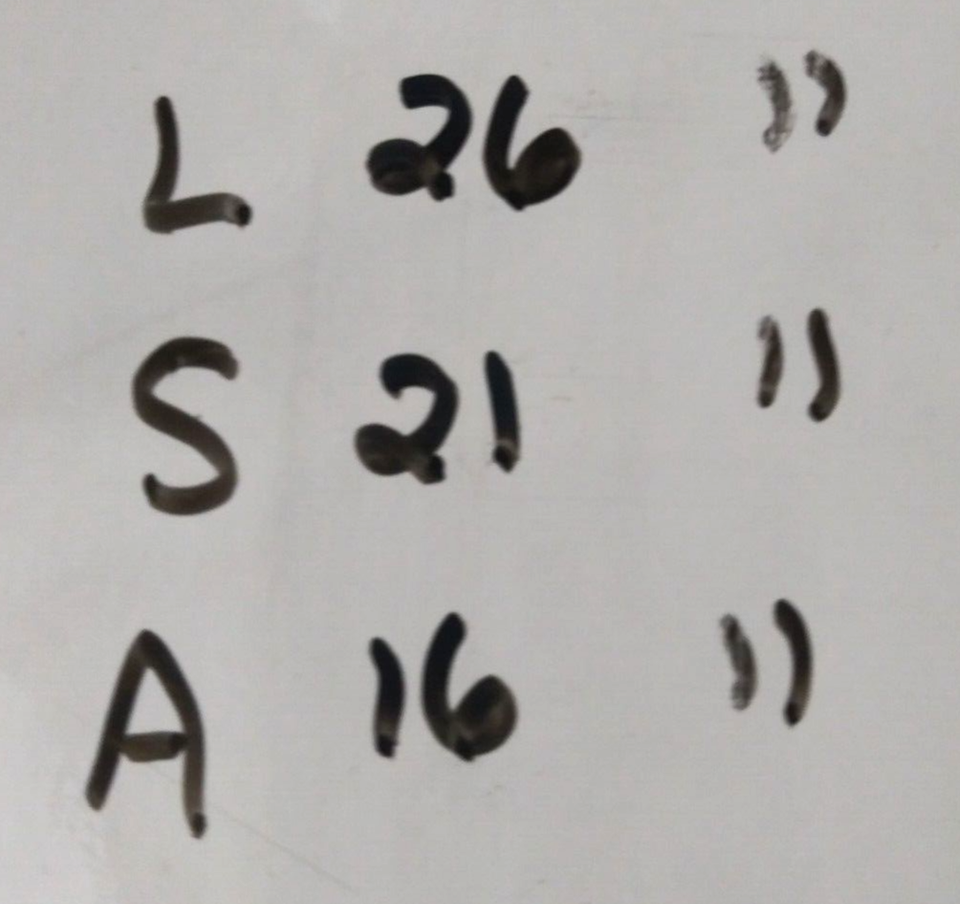 L 26 "
S 21 "
A 16 "